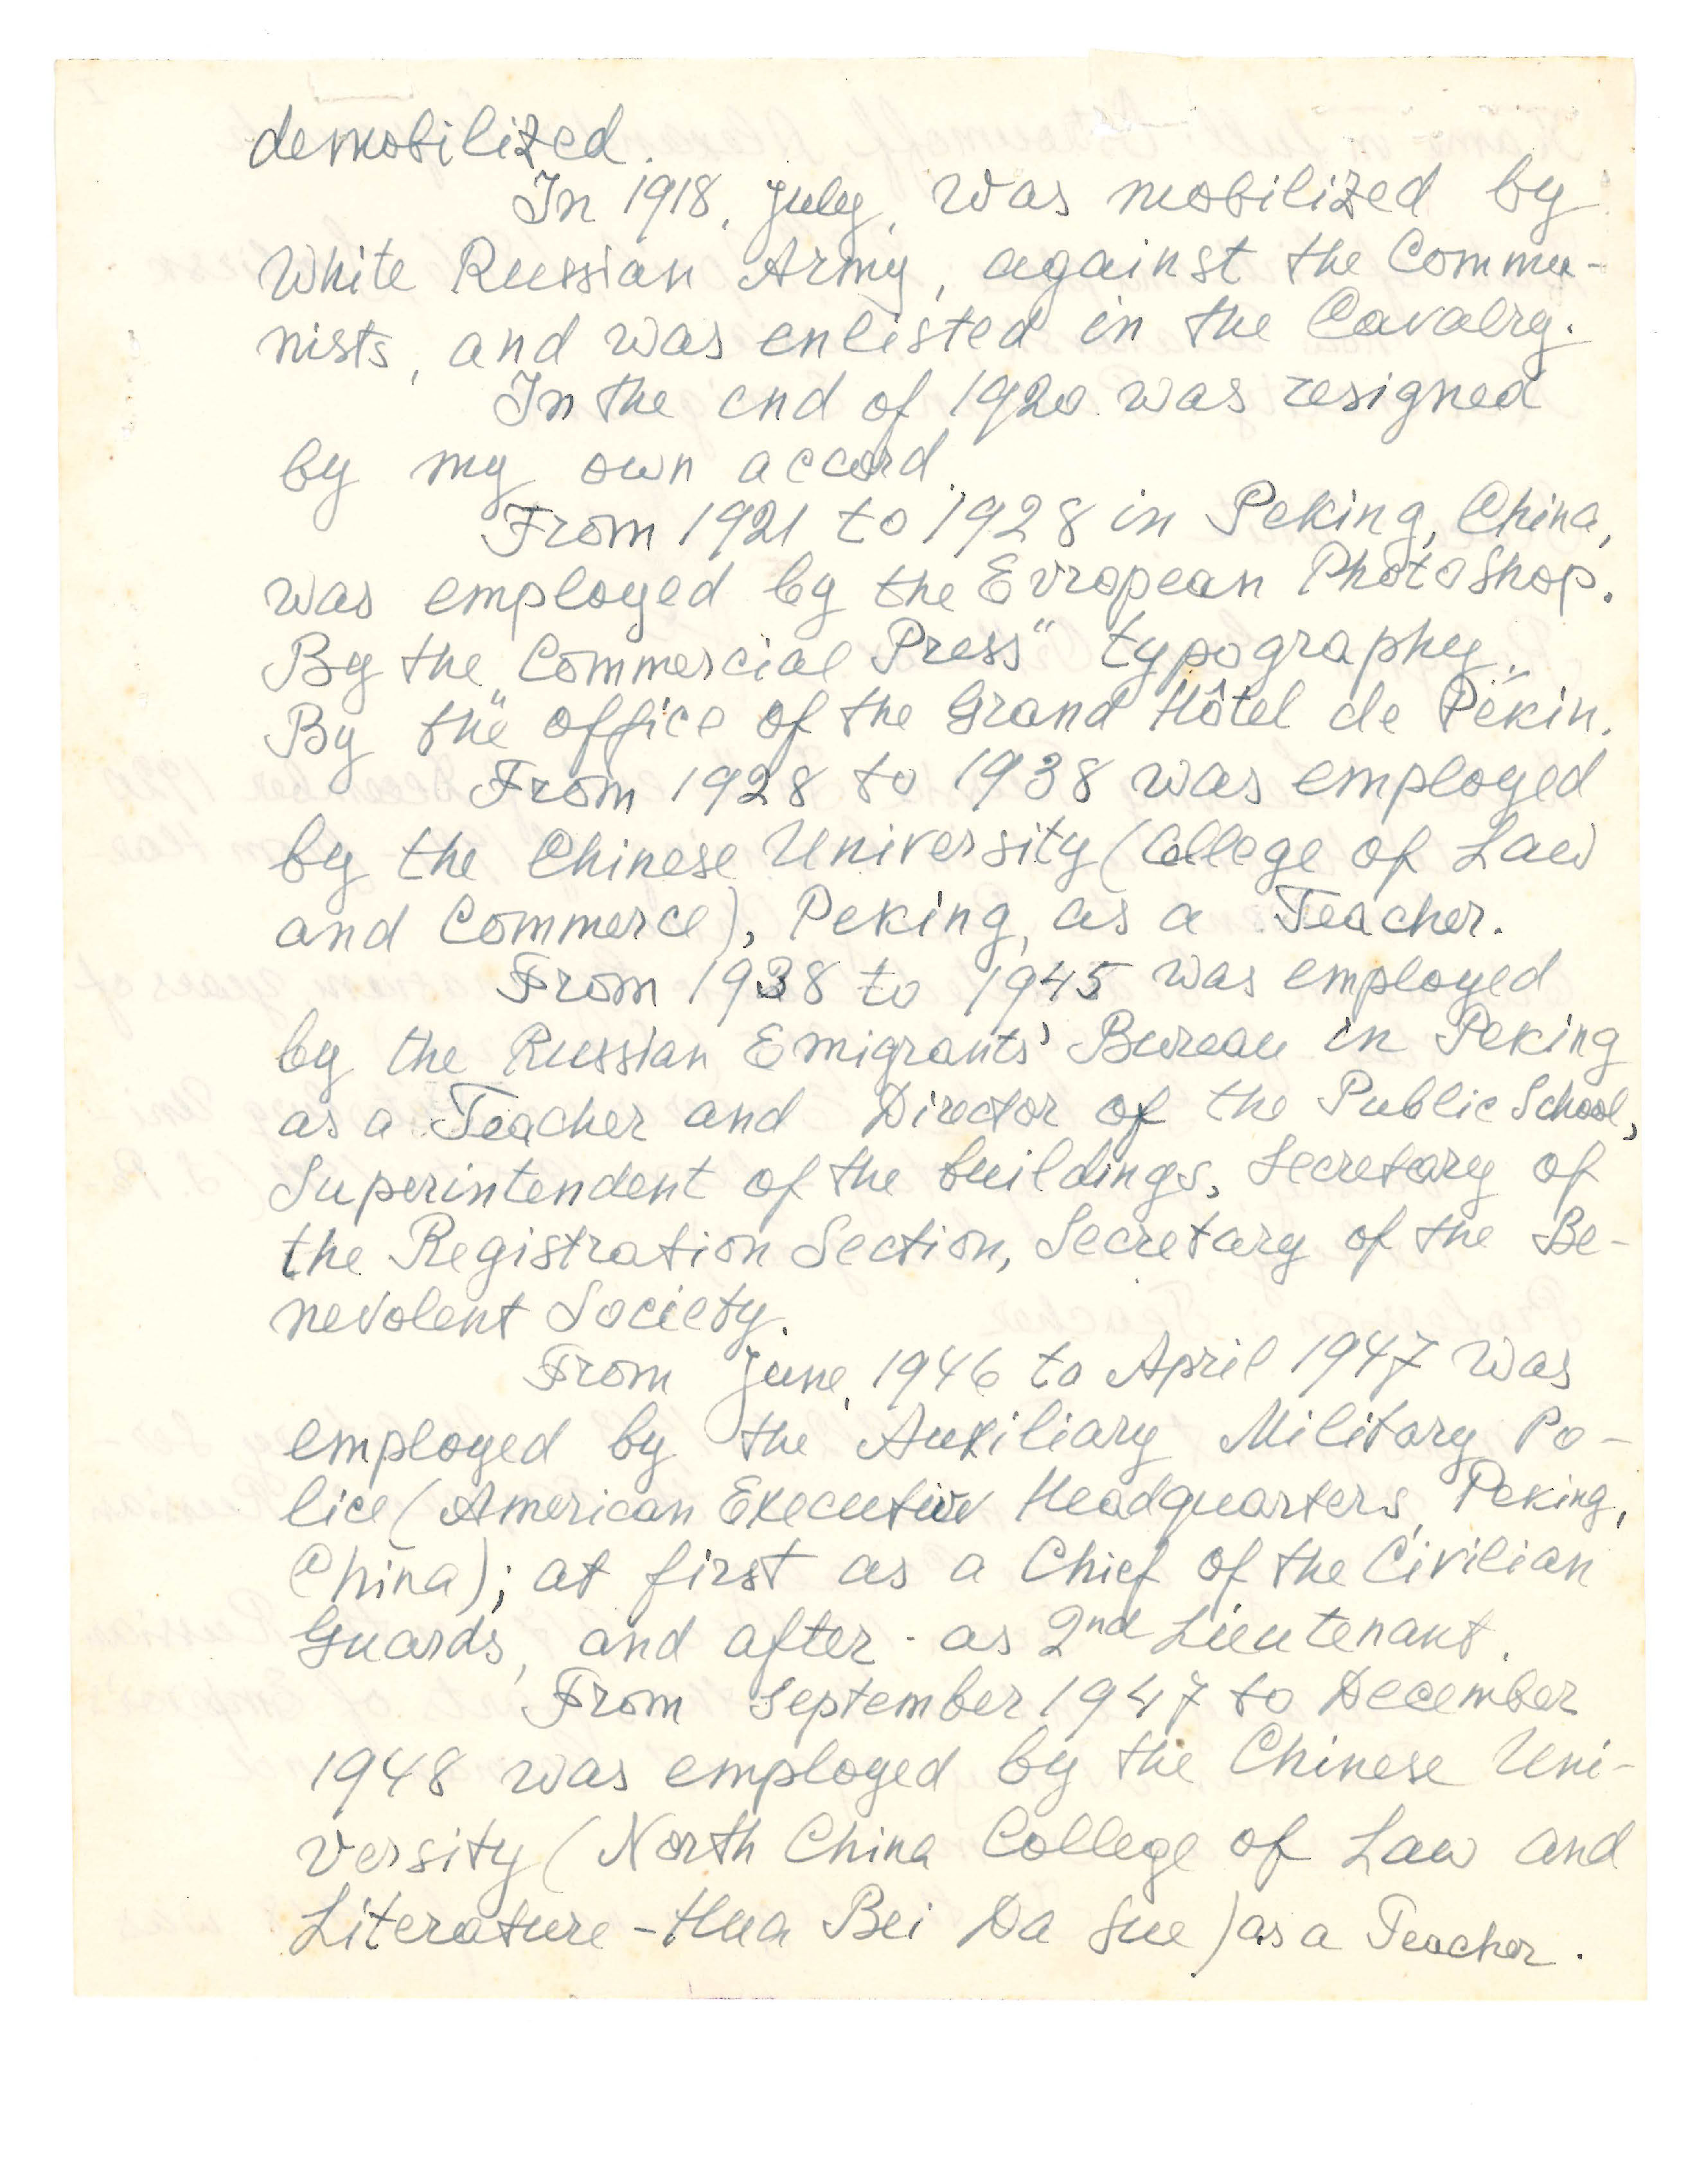 demobilized.
In 1918, July, was mobilized by
White Russian Army, against the Commu-
nists, and was enlisted in the Cavalry.
In the end of 1920 was resigned
by my own accord.
From 1921 to 1928 in Peking, China,
was employed by the Evropean Photo Shop.
By the "Commercial Press" typography.
By the "office of the Grand Hôtel de Pékin."
From 1928 to 1938 was employed
by the Chinese University (College of Law
and Commerce), Peking, as a Teacher.
From 1938 to 1945 was employed
by the Russian Emigrants' Bureau in Peking
as a Teacher and Director of the Public School,
Superintendent of the buildings, Secretary of
the Registration Section, Secretary of the Be-
nevolent Society.
From June, 1946 to April 1947 was
employed by the Auxiliary Military Po-
lice (American Executive Headquarters, Peking,
China); at first as a Chief of the Civilian
Guards, and after - as 2nd Lieutenant.
From September 1947 to December
1948 was employed by the Chinese Uni-
versity (North China College of Law and
Literature - Hua Bei Da Sue) as a Teacher.